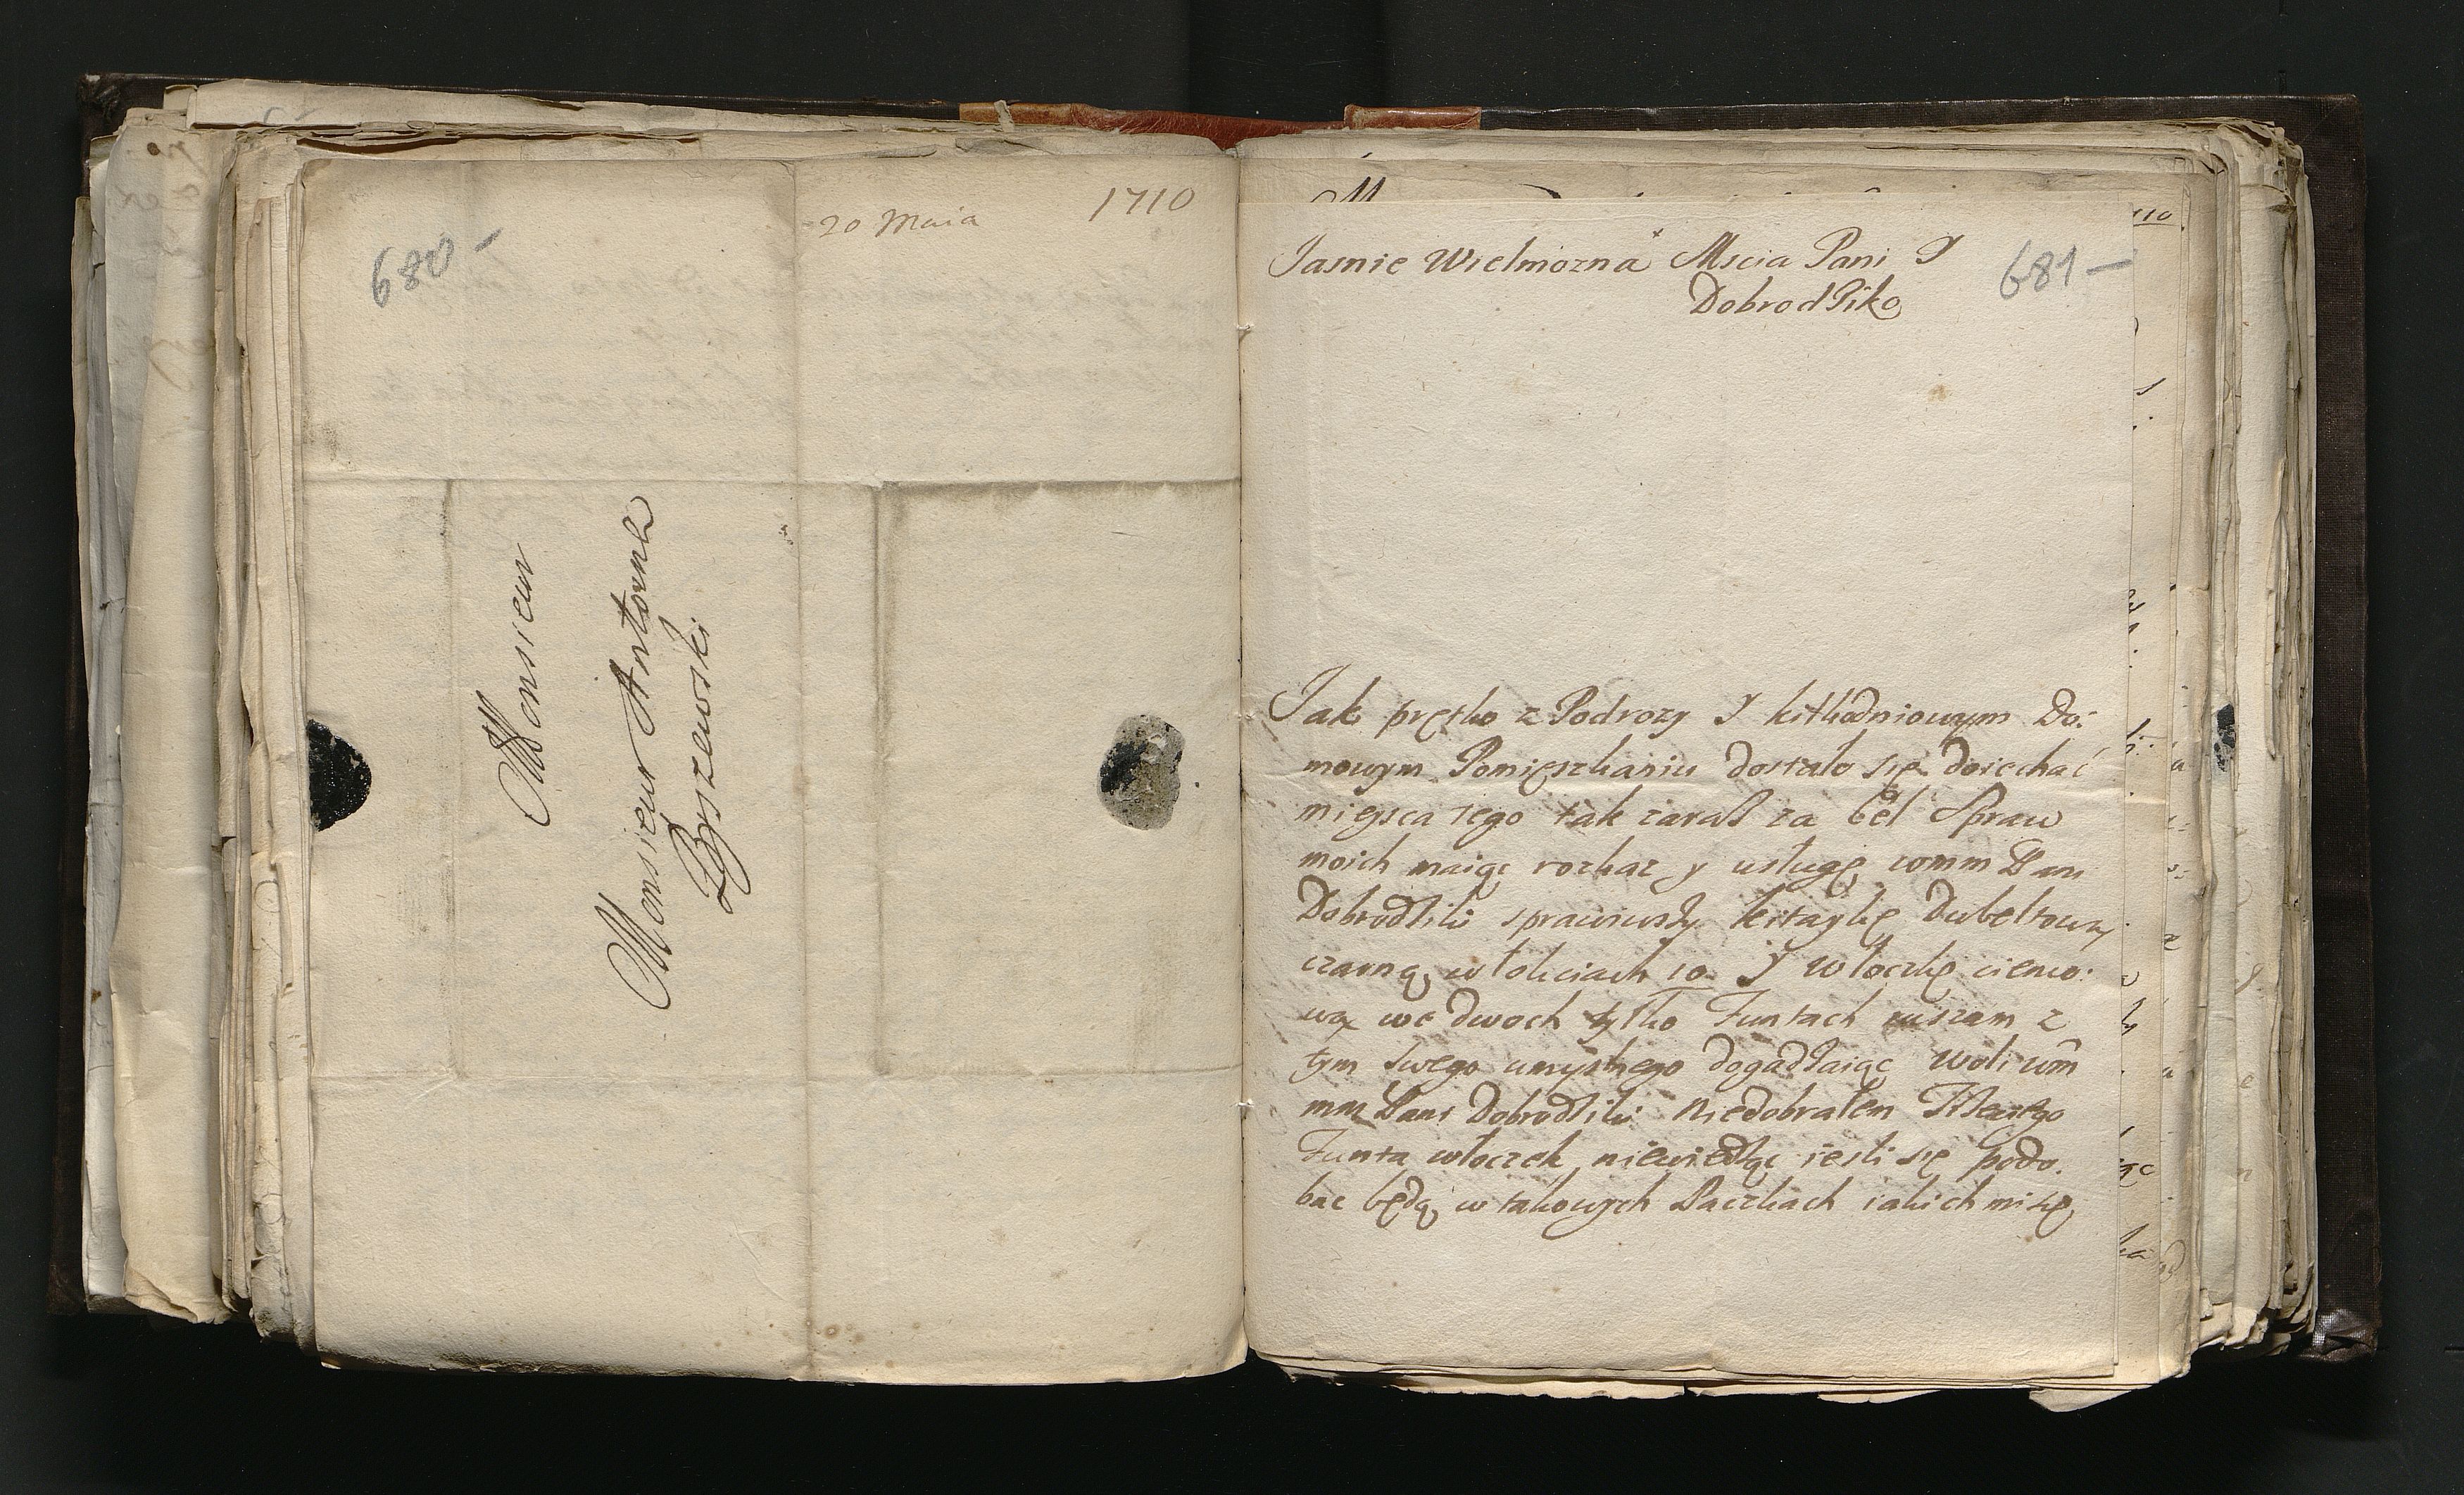 1710
20 Maia
680 -
Monsieur
Monsieur Antoine
Ryszewski
681 -
Jasnie Wielmozna Mscia Pani J
Dobrodźiko
Jak prętko z Podrozy J kilkodniowym Do:
mowym Pomięszkaniu dostało się doiechać
miejsca tego tak zaraz za cel Spraw
moich maiąc rozkaz y usługę womm Pani
Dobrodźiki sprawiwszy kitaykę Dubeltową
czarną w łokciach 10 J włoczkę cieniо:
wą we dwoch tylko Funtach
tym swego umyslnego dogadzaiąc woli wm̃
mm Pani Dobrodźiki Niedobrałem
Funta włoczek niewiedząc iesli się podo.
bac będą w takowych Paczkach iakich